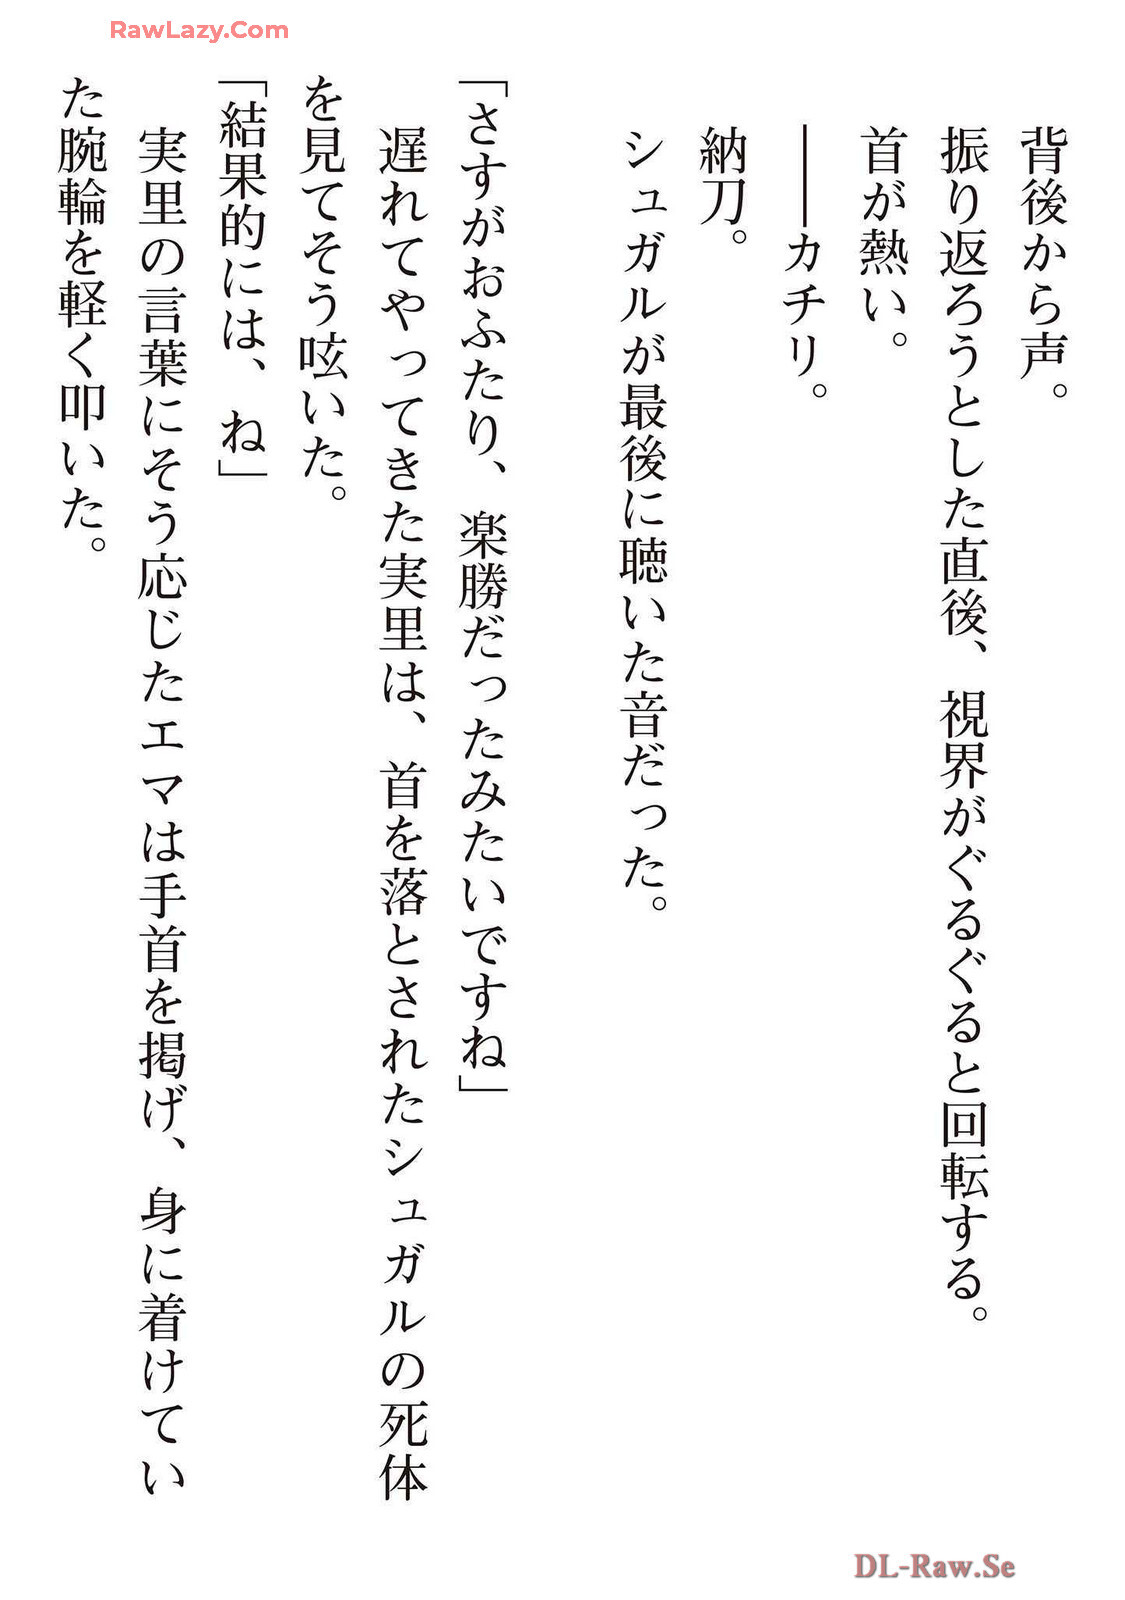 RawLazy.Com
背後から声。
振り返ろうとした直後、視界がぐるぐると回転する。
首が熱い。
――カチリ。
納刀。
シュガルが最後に聴いた音だった。
「さすがおふたり、楽勝だったみたいですね」
遅れてやってきた実里は、首を落とされたシュガルの死体
を見てそう呟いた。
「結果的には、ね」
実里の言葉にそう応じたエマは手首を掲げ、身に着けてい
た腕輪を軽く叩いた。
DL-Raw.Se